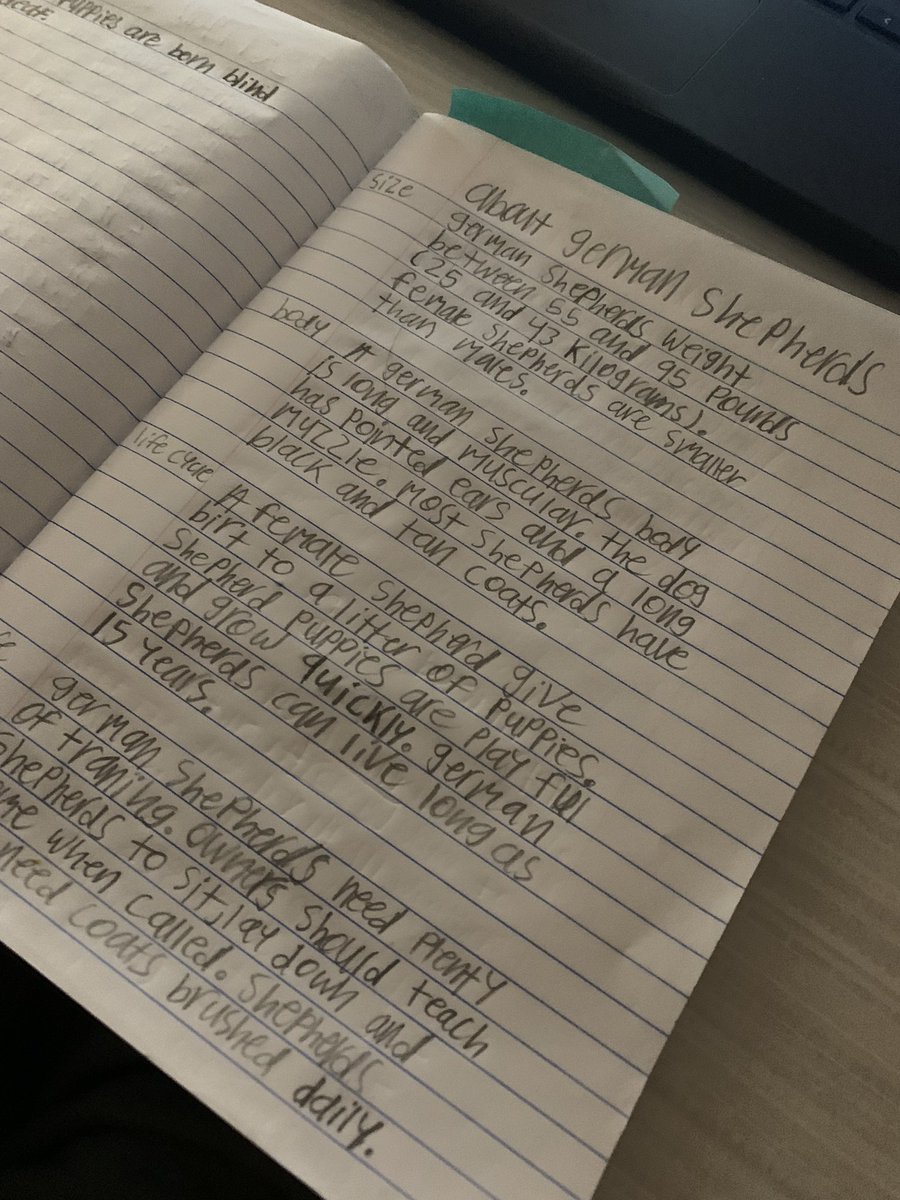 puppies are born blind
about german shepherds
size
german shepherds weight
between 55 and 95 pounds
(25 and 43 kilograms).
female shepherds are smaller
than males.
body
A german shepherds body
is long and muscular. the dog
has pointed ears and a long
muzzle. most shepherds have
black and tan coats.
life cycle
A female shepherd give
birt to a litter of puppies.
shepherd puppies are play ful
and grow quickly. german
shepherds can live long as
15 years.
german shepherds need plenty
of traning. owners should teach
shepherds to sit, lay down and
when called. shepherds
need coats brushed daily.